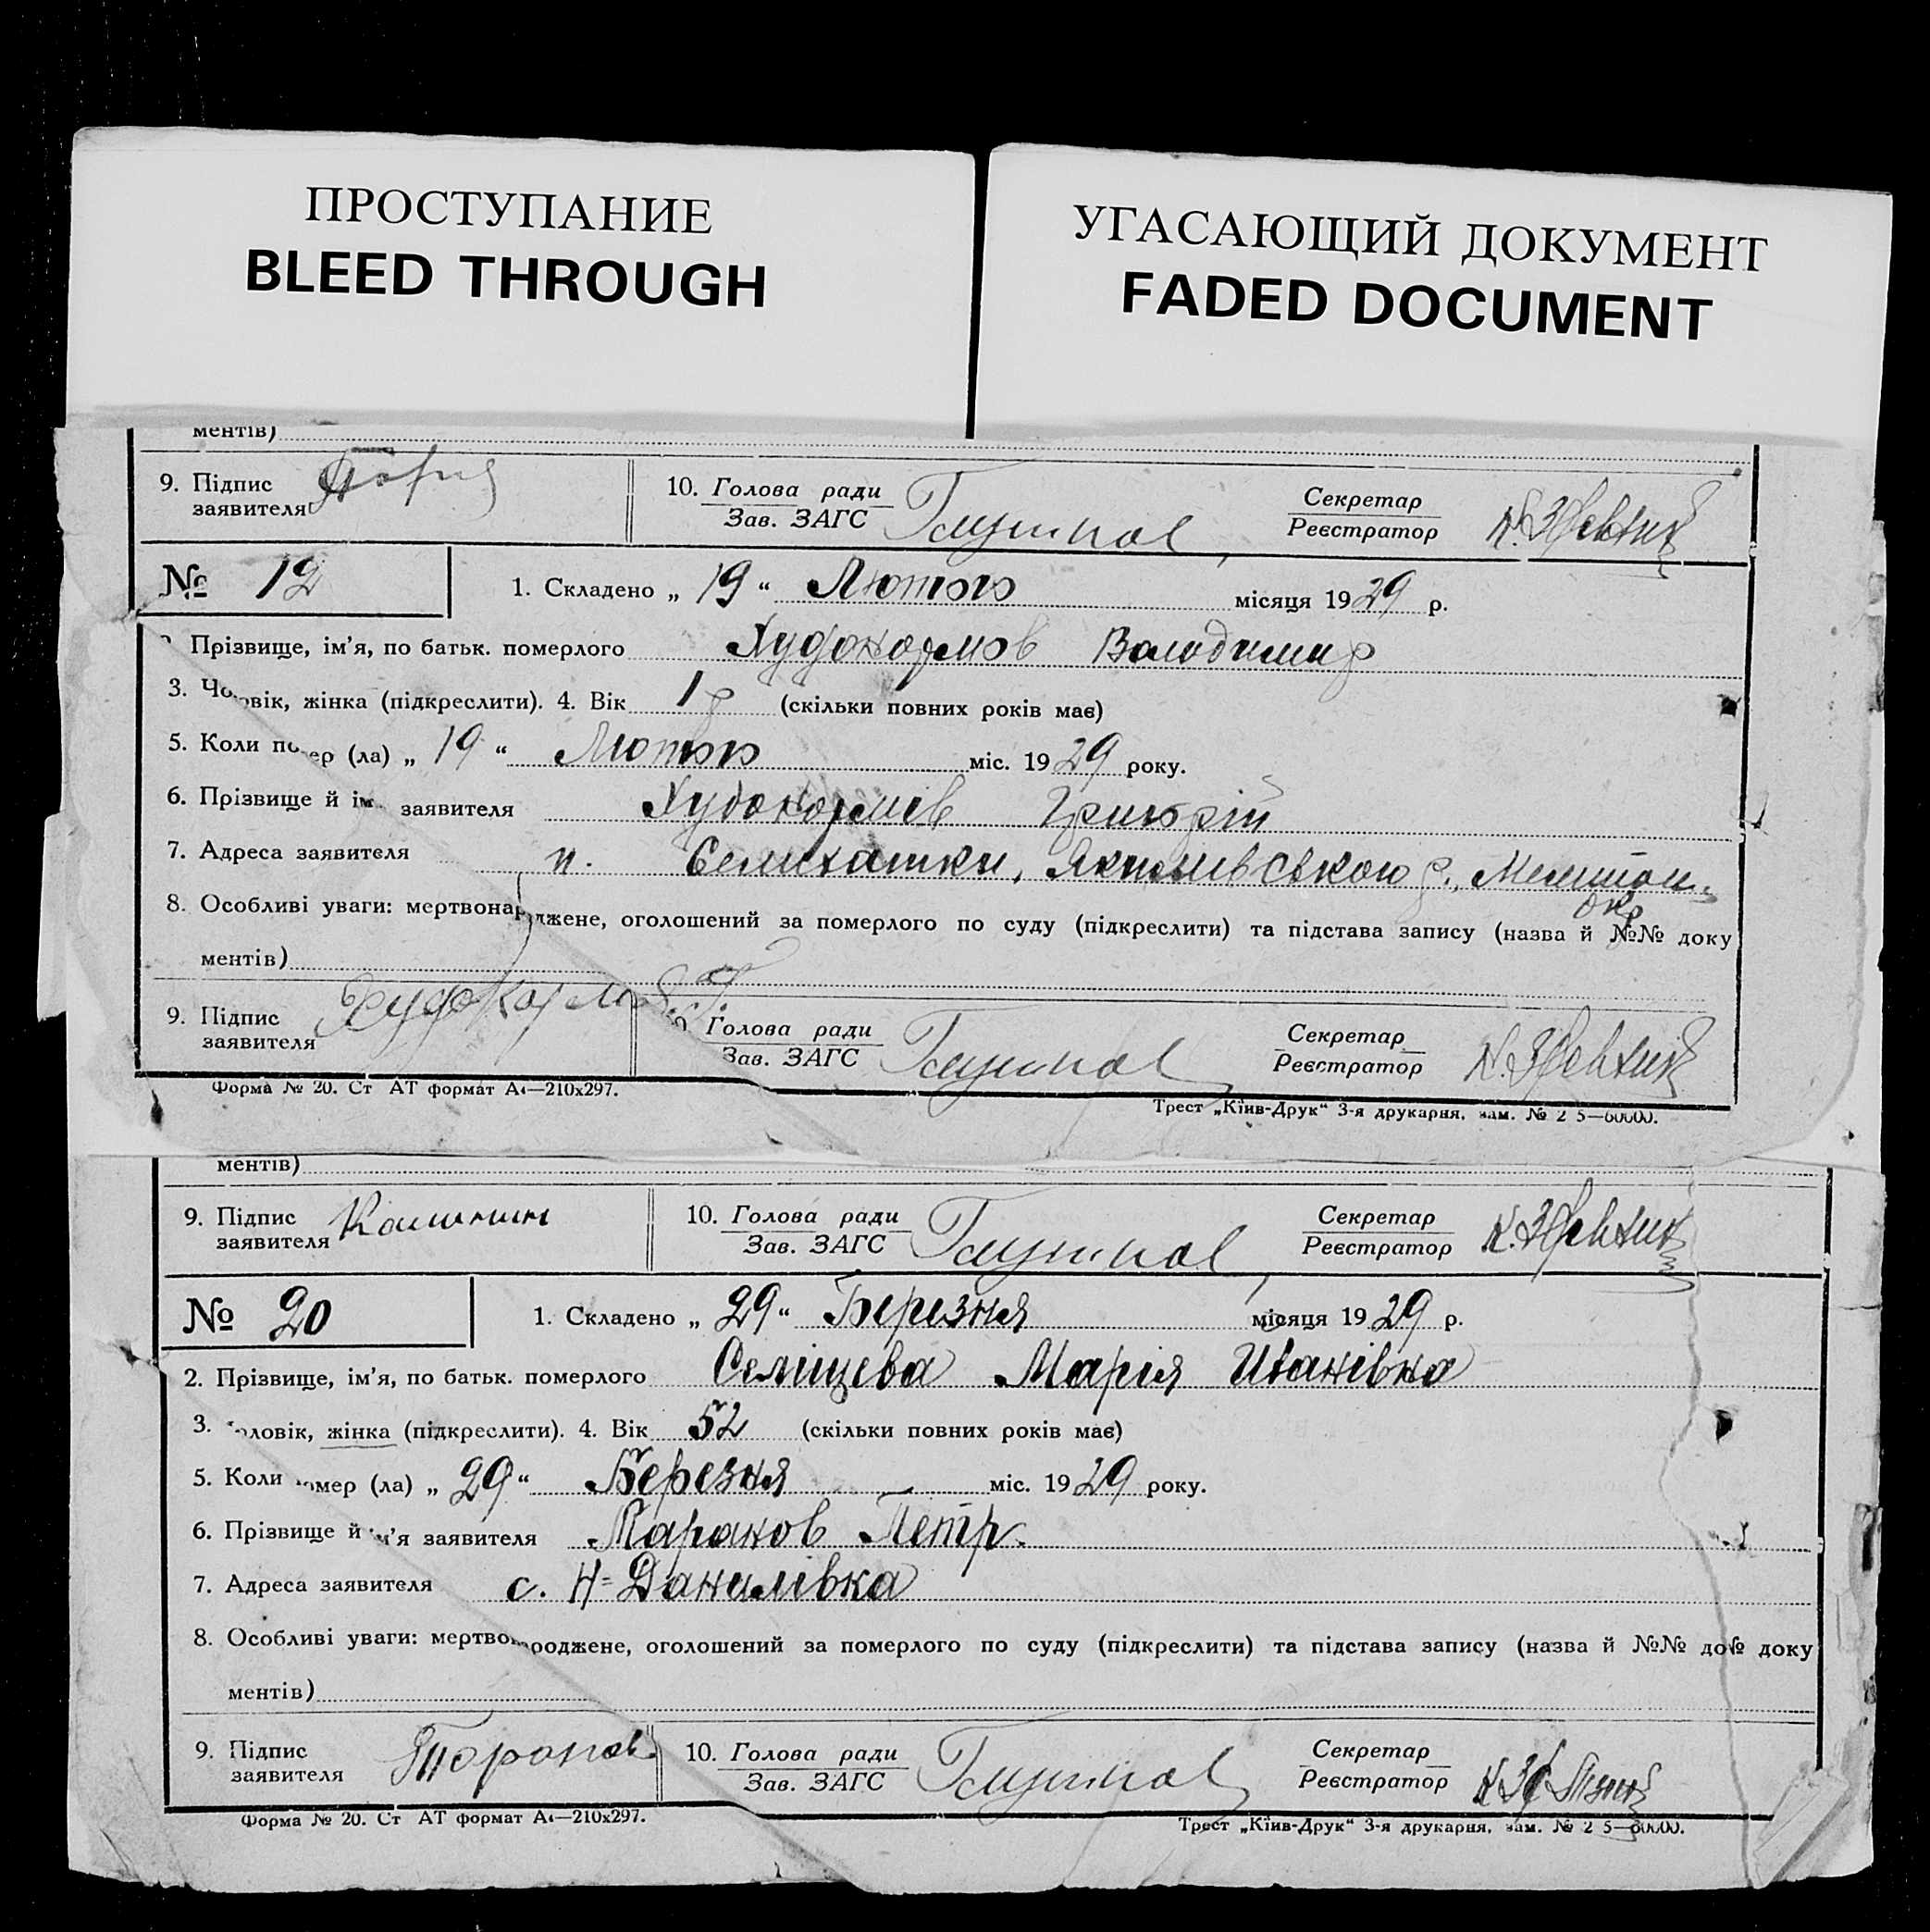 ПРОСТУПАНИЕ
BLEED THROUGH
УГАСАЮЩИЙ ДОКУМЕНТ
FADED DOCUMENT
ментів)
9. Підпис заявителя
10. Голова ради
Зав. ЗАГС
Секретар
Реєстратор
№ 12
1. Складено „ 19 “ Лютого місяця 1929 р.
Прізвище, ім'я, по батьк. померлого Худокормов Володимир
3. Чо овік, жінка (підкреслити). 4. Вік 1 р (скільки повних років має)
5. Коли по ер (ла) „ 19 “ Лютого міс. 1929 року.
6. Прізвище й ім заявителя Худокормів Григорій
7. Адреса заявителя п. Якимівського р.,
окр
8. Особливі уваги: мертвонароджене, оголошений за померлого по суду (підкреслити) та підстава запису (назва й №№ доку
ментів)
9. Підпис заявителя Худокормов Г.
Голова ради
Зав. ЗАГС
Секретар
Реєстратор
Форма № 20. Ст АТ формат А4—210х297.
Трест „Київ-Друк“ 3-я друкарня, зам. № 2 5—60000.
ментів)
9. Підпис заявителя
10. Голова ради
Зав. ЗАГС
Секретар
Реєстратор
№ 20
1. Складено „ 29 “ Березня місяця 1929 р.
2. Прізвище, ім'я, по батьк. померлого Селіщева Марія Иванівна
3. оловік, жінка (підкреслити). 4. Вік 52 (скільки повних років має)
5. Коли омер (ла) „ 29 “ Березня міс. 1929 року.
6. Прізвище й м'я заявителя Таранов Петр
7. Адреса заявителя с. Н-Данилівка
8. Особливі уваги: мертвонароджене, оголошений за померлого по суду (підкреслити) та підстава запису (назва й №№ до№ доку
ментів)
9. Підпис заявителя Торанов
10. Голова ради
Зав. ЗАГС
Секретар
Реєстратор
Форма № 20. Ст АТ формат А4—210х297.
Трест „Київ-Друк“ 3-я друкарня, зам. № 2 5—60000.